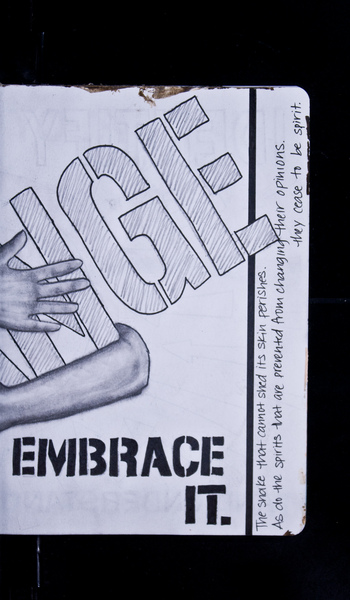 NGE
EMBRACE
IT.
The snake that cannot shed its skin perishes.
As do the spirits that are prevented from changing their opinions.
they cease to be spirit.